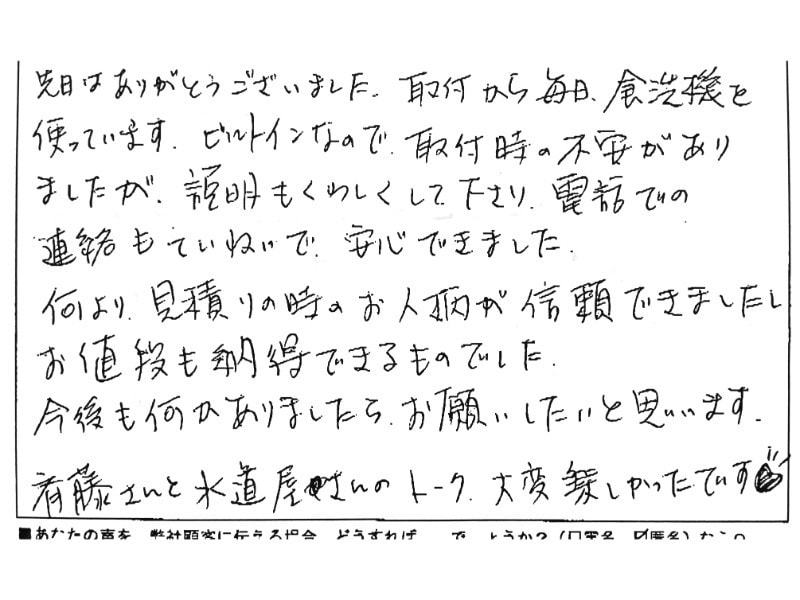 先日はありがとうございました。取付から毎日、食洗機を
使っています。ビルトインなので、取付時の不安があり
ましたが、説明もくわしくして下さり、電話での
連絡もていねいで、安心できました。
何より、見積りの時のお人柄が信頼できましたし
お値段も納得できるものでした。
今後も何かありましたら、お願いしたいと思います。
斉藤さんと水道屋さんのトーク、大変楽しかったです
■あなたの声を、弊社顧客に伝える場合、どうすれば